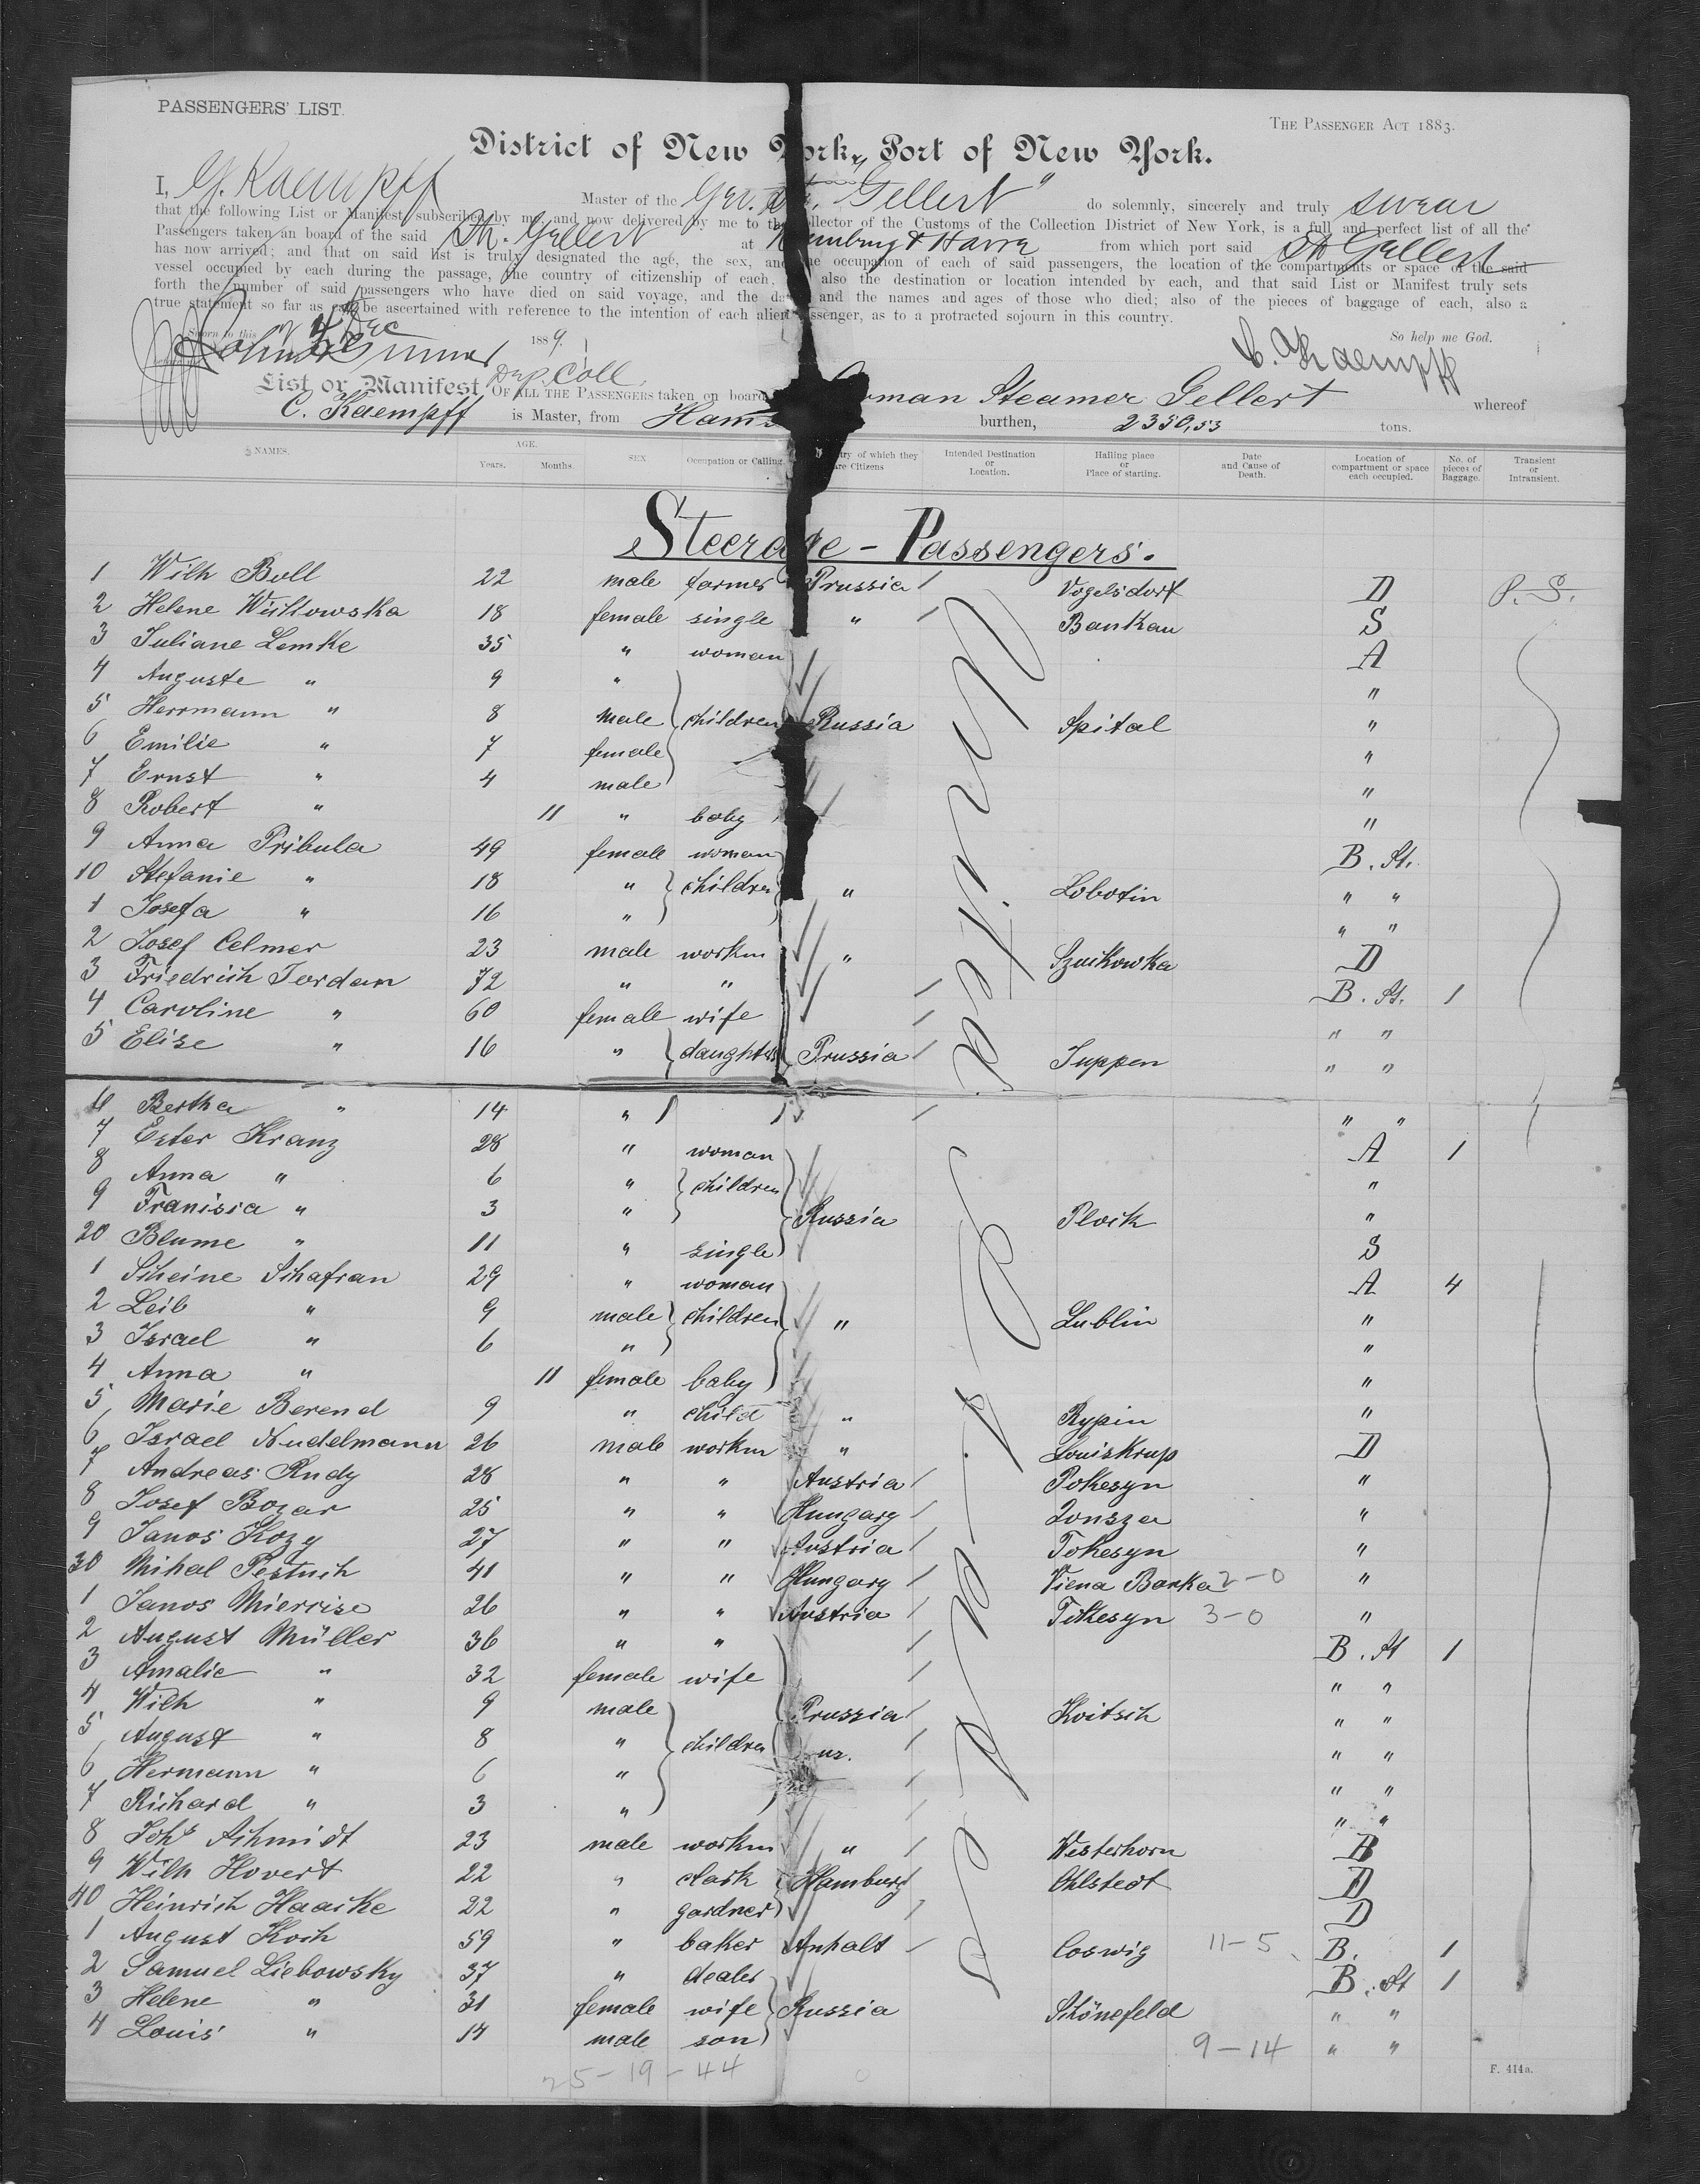 PASSENGERS' LIST.
THE PASSENGER ACT 1883.
District of New York, Port of New York.
I, G. Kaempff Master of the Ger. Str. "Gellert" do solemnly, sincerely and truly swear
that the following List or Manifest, subscribed by me, and now delivered by me to the Collector of the Customs of the Collection District of New York, is a full and perfect list of all the
Passengers taken on board of the said Str. Gellert at Hamburg & Havre from which port said Str Gellert
has now arrived; and that on said list is truly designated the age, the sex, and the occupation of each of said passengers, the location of the compartments or space of the said
vessel occupied by each during the passage, the country of citizenship of each, also the destination or location intended by each, and that said List or Manifest truly sets
forth the number of said passengers who have died on said voyage, and the dates and the names and ages of those who died; also of the pieces of baggage of each, also a
true statement so far as can be ascertained with reference to the intention of each alien passenger, as to a protracted sojourn in this country.
Sworn to this 4 Dec 1889. So help me God.
C. Kaempff
Dep. Coll.
List or Manifest OF ALL THE PASSENGERS taken on board German Steamer Gellert whereof
C. Kaempff is Master, from Hamb burthen, 2350,53 tons.
NAMES. AGE. Years. Months. SEX Occupation or Calling. Country of which they are Citizens Intended Destination or Location. Hailing place or Place of starting. Date and Cause of Death. Location of compartment or space each occupied. No. of pieces of Baggage. Transient or Intransient.
Steerage - Passengers.
1 Wilh Boll 22 male farmer Prussia Vogelsdorf D P. S.
2 Helene Wistowska 18 female single " Bankau S
3 Juliane Lemke 35 " woman A
4 Auguste " 9 " "
5 Herrmann " 8 male children Russia Spital "
6 Emilie " 7 female "
7 Ernst " 4 male "
8 Robert " 11 " baby "
9 Anna Pribula 49 female woman B. St.
10 Stefanie " 18 " children " Lobotin " "
1 Josefa " 16 " " "
2 Josef Celmer 23 male workm " Szuikowka D
3 Friedrich Jordan 72 " " B. St. 1
4 Caroline " 60 female wife " "
5 Elise " 16 " daughters Prussia Juppen " "
6 Bertha " 14 " " "
7 Ester Kranz 28 " woman A 1
8 Anna " 6 " children "
9 Franisia " 3 " Russia Plock "
20 Blume " 11 " single S
1 Scheine Schafran 29 " woman A 4
2 Leib " 9 male children " Lublin "
3 Israel " 6 " "
4 Anna " 11 female baby "
5 Marie Berend 9 " child " Rypin "
6 Israel Nudelmann 26 male workm " Louiskrup D
7 Andreas Rudy 28 " " Austria Tokesyn "
8 Josef Bozar 25 " " Hungary Lonsza "
9 Janos Kozy 27 " " Austria Tokesyn "
30 Mihal Pestuch 41 " " Hungary Viena Banka 2-0 "
1 Janos Mierrise 26 " " Austria Tokesyn 3-0 "
2 August Müller 36 " " B. St 1
3 Amalie " 32 female wife " "
4 Wilh " 9 male Prussia Koitsch " "
5 August " 8 " children " "
6 Hermann " 6 " " "
7 Richard " 3 " " "
8 Johs Schmidt 23 male workm " Westerhorn B
9 Wilh Hovert 22 " clark Hamburg Ohlstedt D
40 Heinrich Haacke 22 " gardner D
1 August Koch 59 " baker Anhalt Coswig 11-5 B. 1
2 Samuel Liebowsky 37 " dealer B. St 1
3 Helene " 31 female wife Russia Schönefeld " "
4 Louis " 14 male son 9-14 " "
25-19-44
F. 414a.